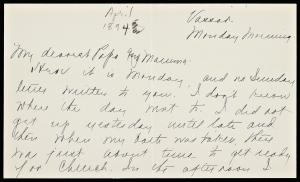 April
1894
Vassar.
Monday Morning
My dearest Papa & Mamma
Here it is Monday, and no Sunday
letter written to you. I don't know
where the day went to. I did not
get up yesterday until late and
then when my bath was taken, there
was just about time to get ready
for Church. In the afternoon I